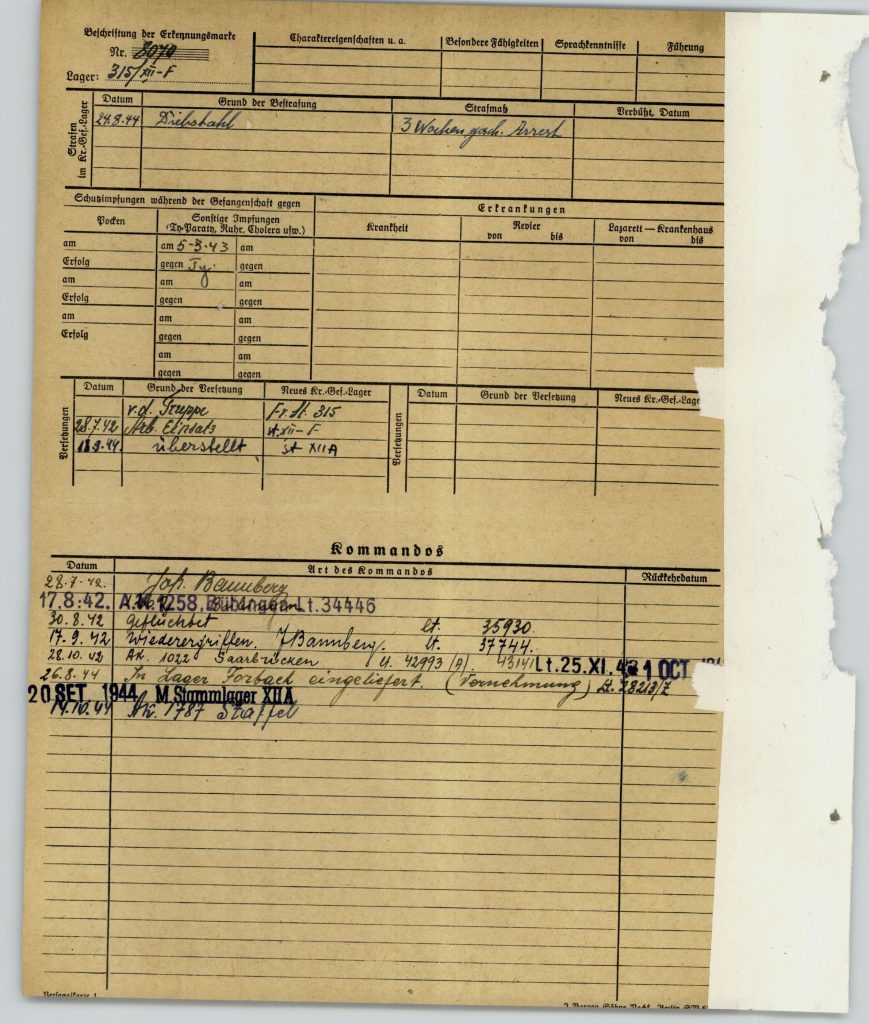 Beschriftung der Erkennungsmarke
Nr. 8070
Lager: 315/XII-F
Charaktereigenschaften u. a.
Besondere Fähigkeiten
Sprachkenntnisse
Führung
Strafen im Kr.-Gef.-Lager
Datum
Grund der Bestrafung
Strafmaß
Verbüßt, Datum
24.8.44 Diebstahl 3 Wochen gesch. Arrest
Schutzimpfungen während der Gefangenschaft gegen
Erkrankungen
Pocken
Sonstige Impfungen
(Ty-Paraty, Ruhr, Cholera usw.)
Krankheit
Revier
von bis
Lazarett — Krankenhaus
von bis
am am 5-3-43 am
Erfolg gegen Ty. gegen
am am am
Erfolg gegen gegen
am am am
Erfolg gegen gegen
am am
gegen gegen
Versetzungen
Datum Grund der Versetzung Neues Kr.-Gef.-Lager
v.d. Truppe Fr. St. 315
28.7.42 Arb. Einsatz St. XII-F
.9.44. überstellt St XIIA
Versetzungen
Datum Grund der Versetzung Neues Kr.-Gef.-Lag
Kommandos
Datum Art des Kommandos Rückkehrdatum
28.7.42. Joh. Bannberg
17.8.42. A.K. 1258, Bübingen Lt. 34446
30.8.42 geflüchtet lt. 35930.
17.9.42 Wiederergriffen. J Bannberg. lt. 37744.
28.10.42 AK. 1022 Saarbrücken lt. 42993 (A). 43141 Lt. 25.XI. 42 1 OCT.
26.8.44 In Lager Forbach eingeliefert. (Vernehmung) Lt. 28213/Z
20 SET. 1944 M. Stammlager XIIA
14.10.44 AK. 1787 Staffel
Personalkarte I